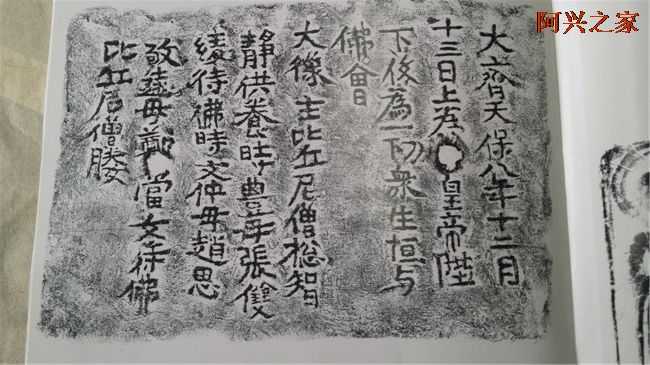 阿兴之家
大齊天保八年十二月
十三日上為皇帝陛
下後為一切衆生恒与
佛會
大像主比丘尼僧惣智
静供養時豊母張雙
緩待佛時文仲母趙思
敬遠母鄭當女侍佛
比丘尼僧勝